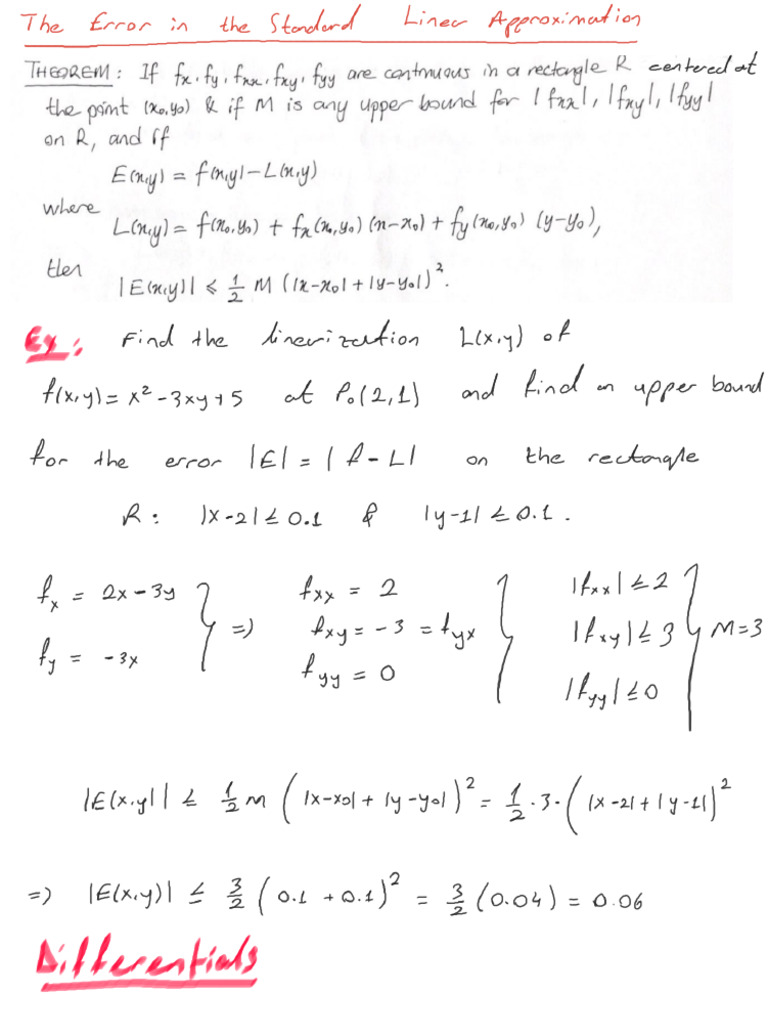 The Error in the Standard Linear Approximation
THEOREM: If fx, fy, fxx, fxy, fyy are continuous in a rectangle R centered at
the point (x₀,y₀) & if M is any upper bound for |fxx|, |fxy|, |fyy|
on R, and if
E(x,y) = f(x,y) - L(x,y)
where
L(x,y) = f(x₀,y₀) + fx(x₀,y₀)(x-x₀) + fy(x₀,y₀)(y-y₀),
then
|E(x,y)| ≤ 1/2 M (|x-x₀| + |y-y₀|)².
Ex: Find the linearization L(x,y) of
f(x,y) = x² - 3xy + 5 at P₀(2,1) and find an upper bound
for the error |E| = |f-L| on the rectangle
R: |x-2| ≤ 0.1 & |y-1| ≤ 0.1.
fx = 2x - 3y } => fxx = 2 } |fxx| ≤ 2 }
fy = -3x fxy = -3 = fyx |fxy| ≤ 3 M=3
fyy = 0 |fyy| ≤ 0
|E(x,y)| ≤ 1/2 M (|x-x₀| + |y-y₀|)² = 1/2 · 3 · (|x-2| + |y-1|)²
=> |E(x,y)| ≤ 3/2 (0.1 + 0.1)² = 3/2 (0.04) = 0.06
Differentials